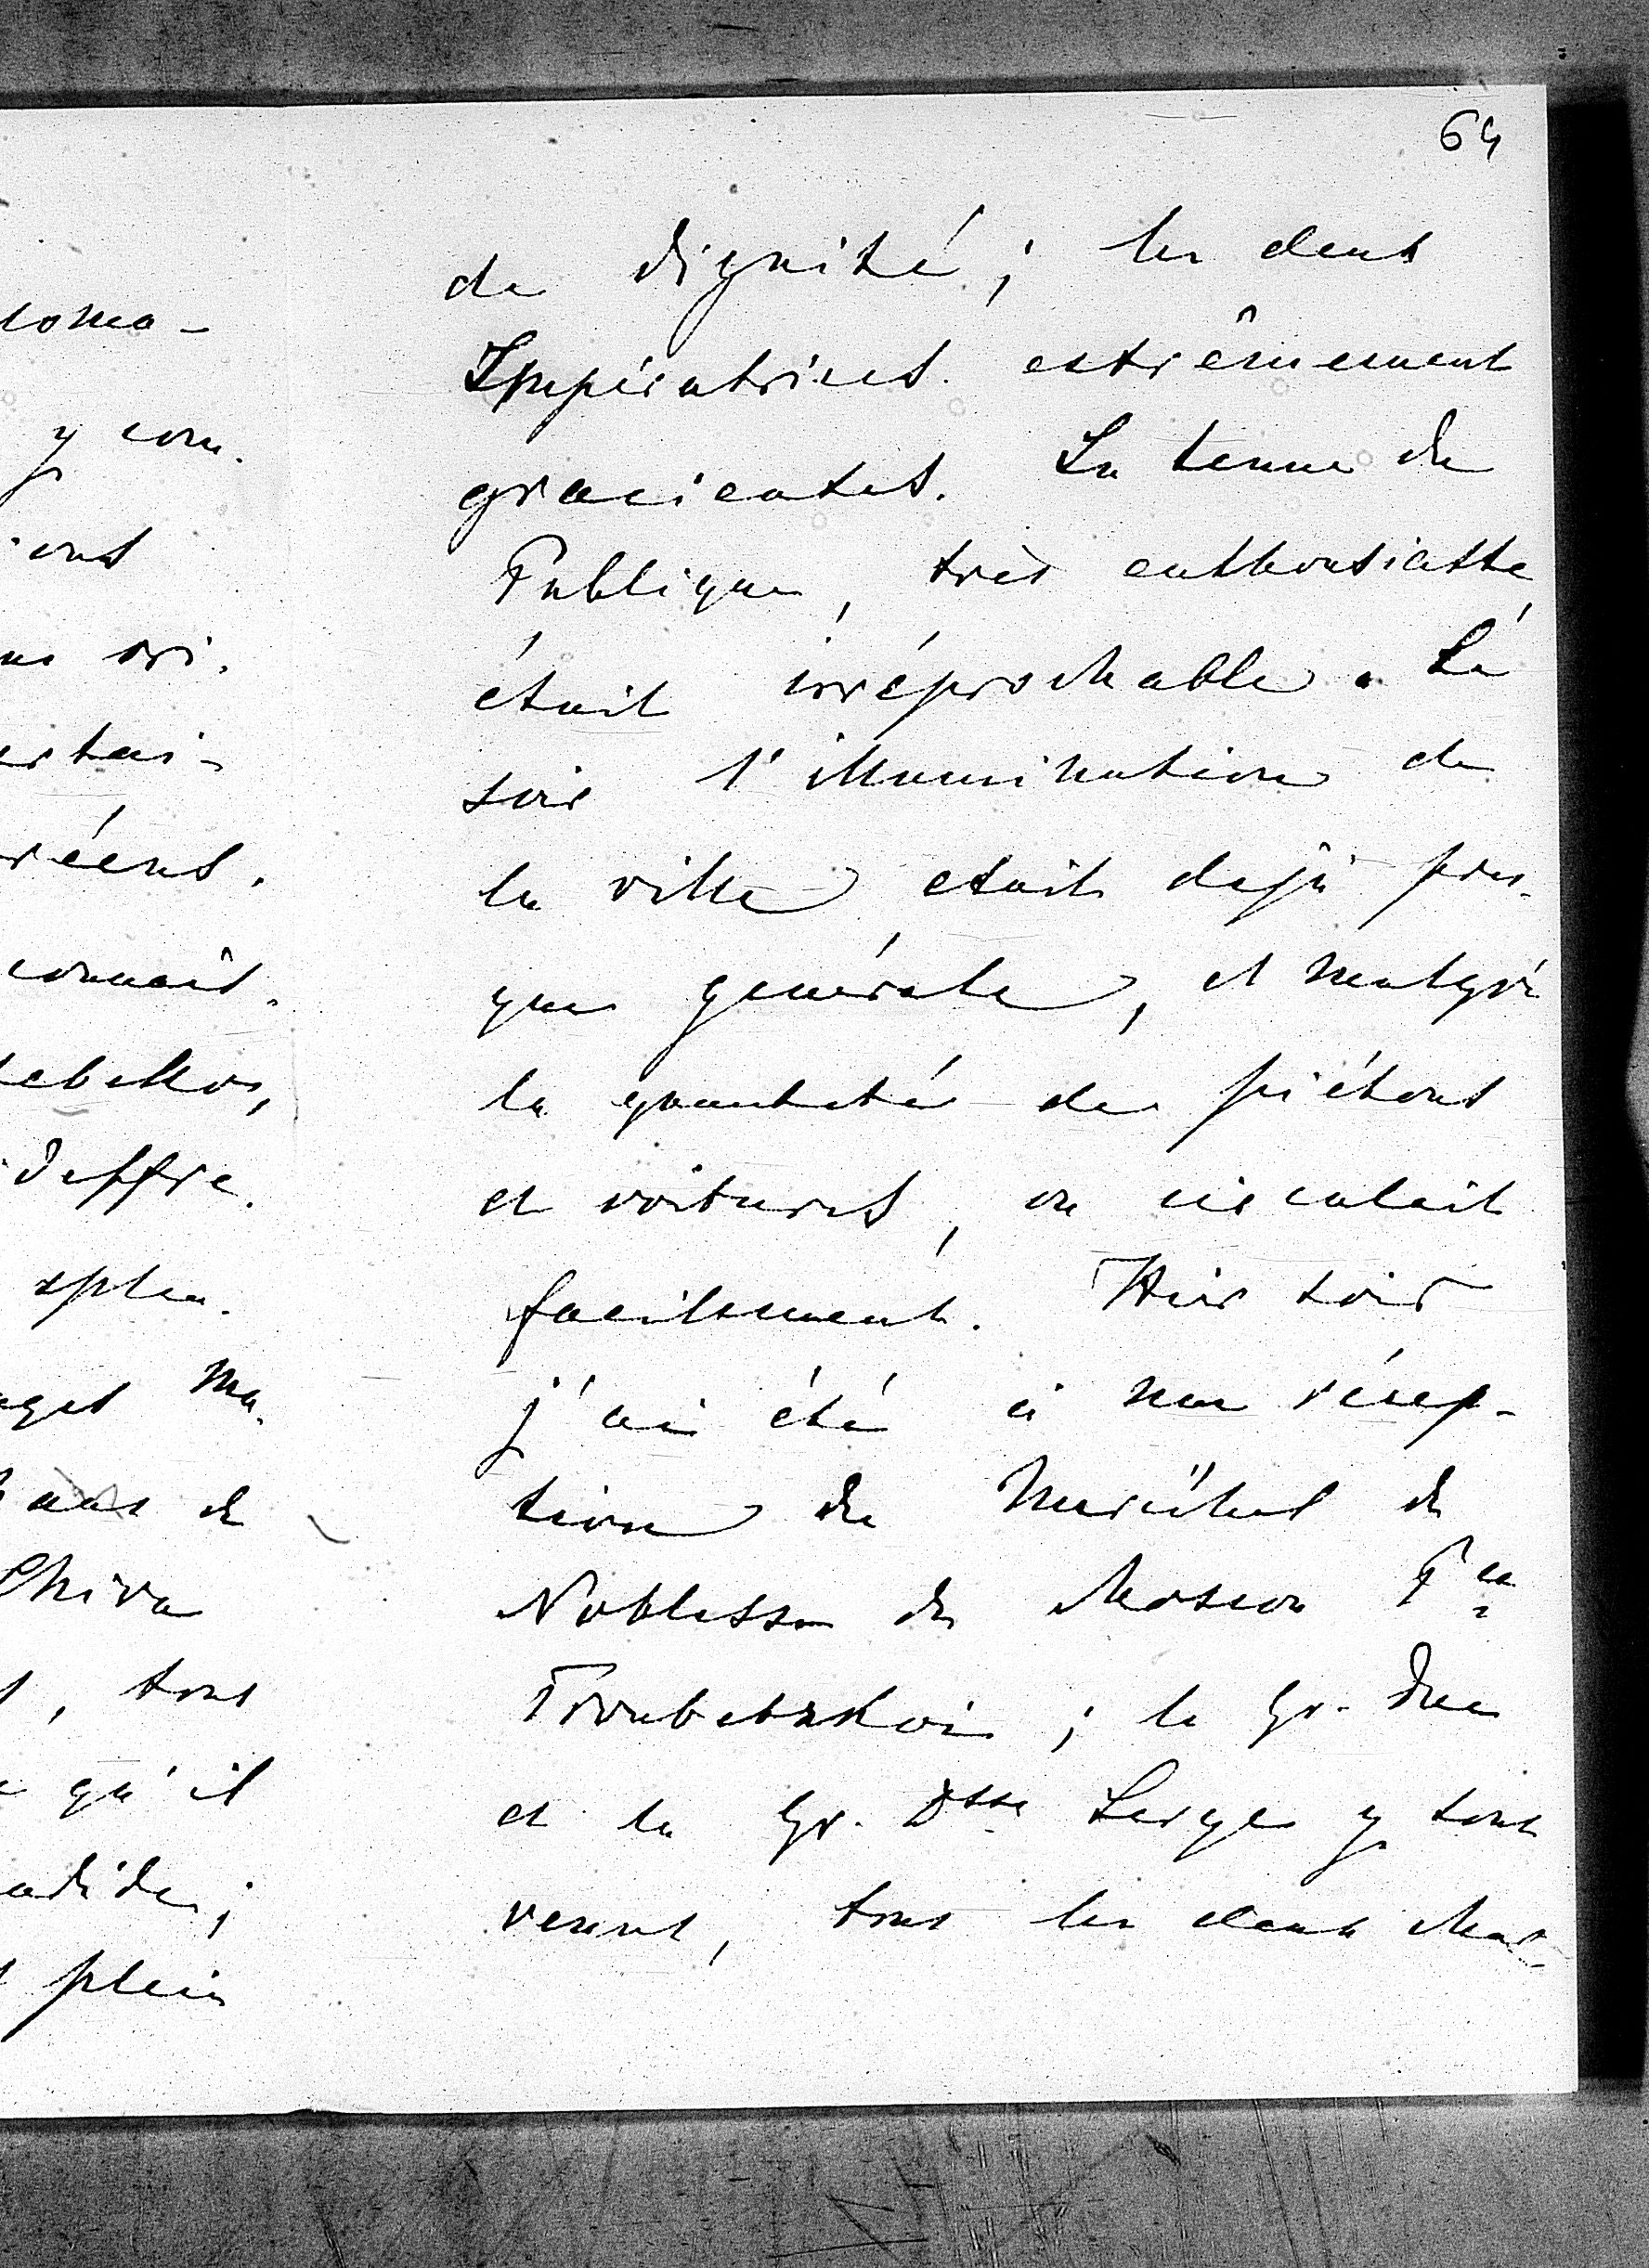 64
de dignité; les deux
Impératrices extrêmement
gracieuses. La tenue du
Publique, très enthousiaste,
était irréprochable. Le
soir l'illumination de
la ville etait dejà pres-
que generale, et malgré
la quantité de piétons
et voitures, on circulait
facilement. Hier soir
j'ai été à une récep-
tion du Maréchal de
Noblesse de Moscou Pce
Troubetzkoi; le Gr. Duc
et la Gr. Dsse Serge y sont
venus, tous les deux char-
coma-
y com.
ions
ori.
tai-
réens.
connais.
tebello,
deffre.
splen.
ages Ma.
de
Chiva
, tous
qu'il
adide;
plein